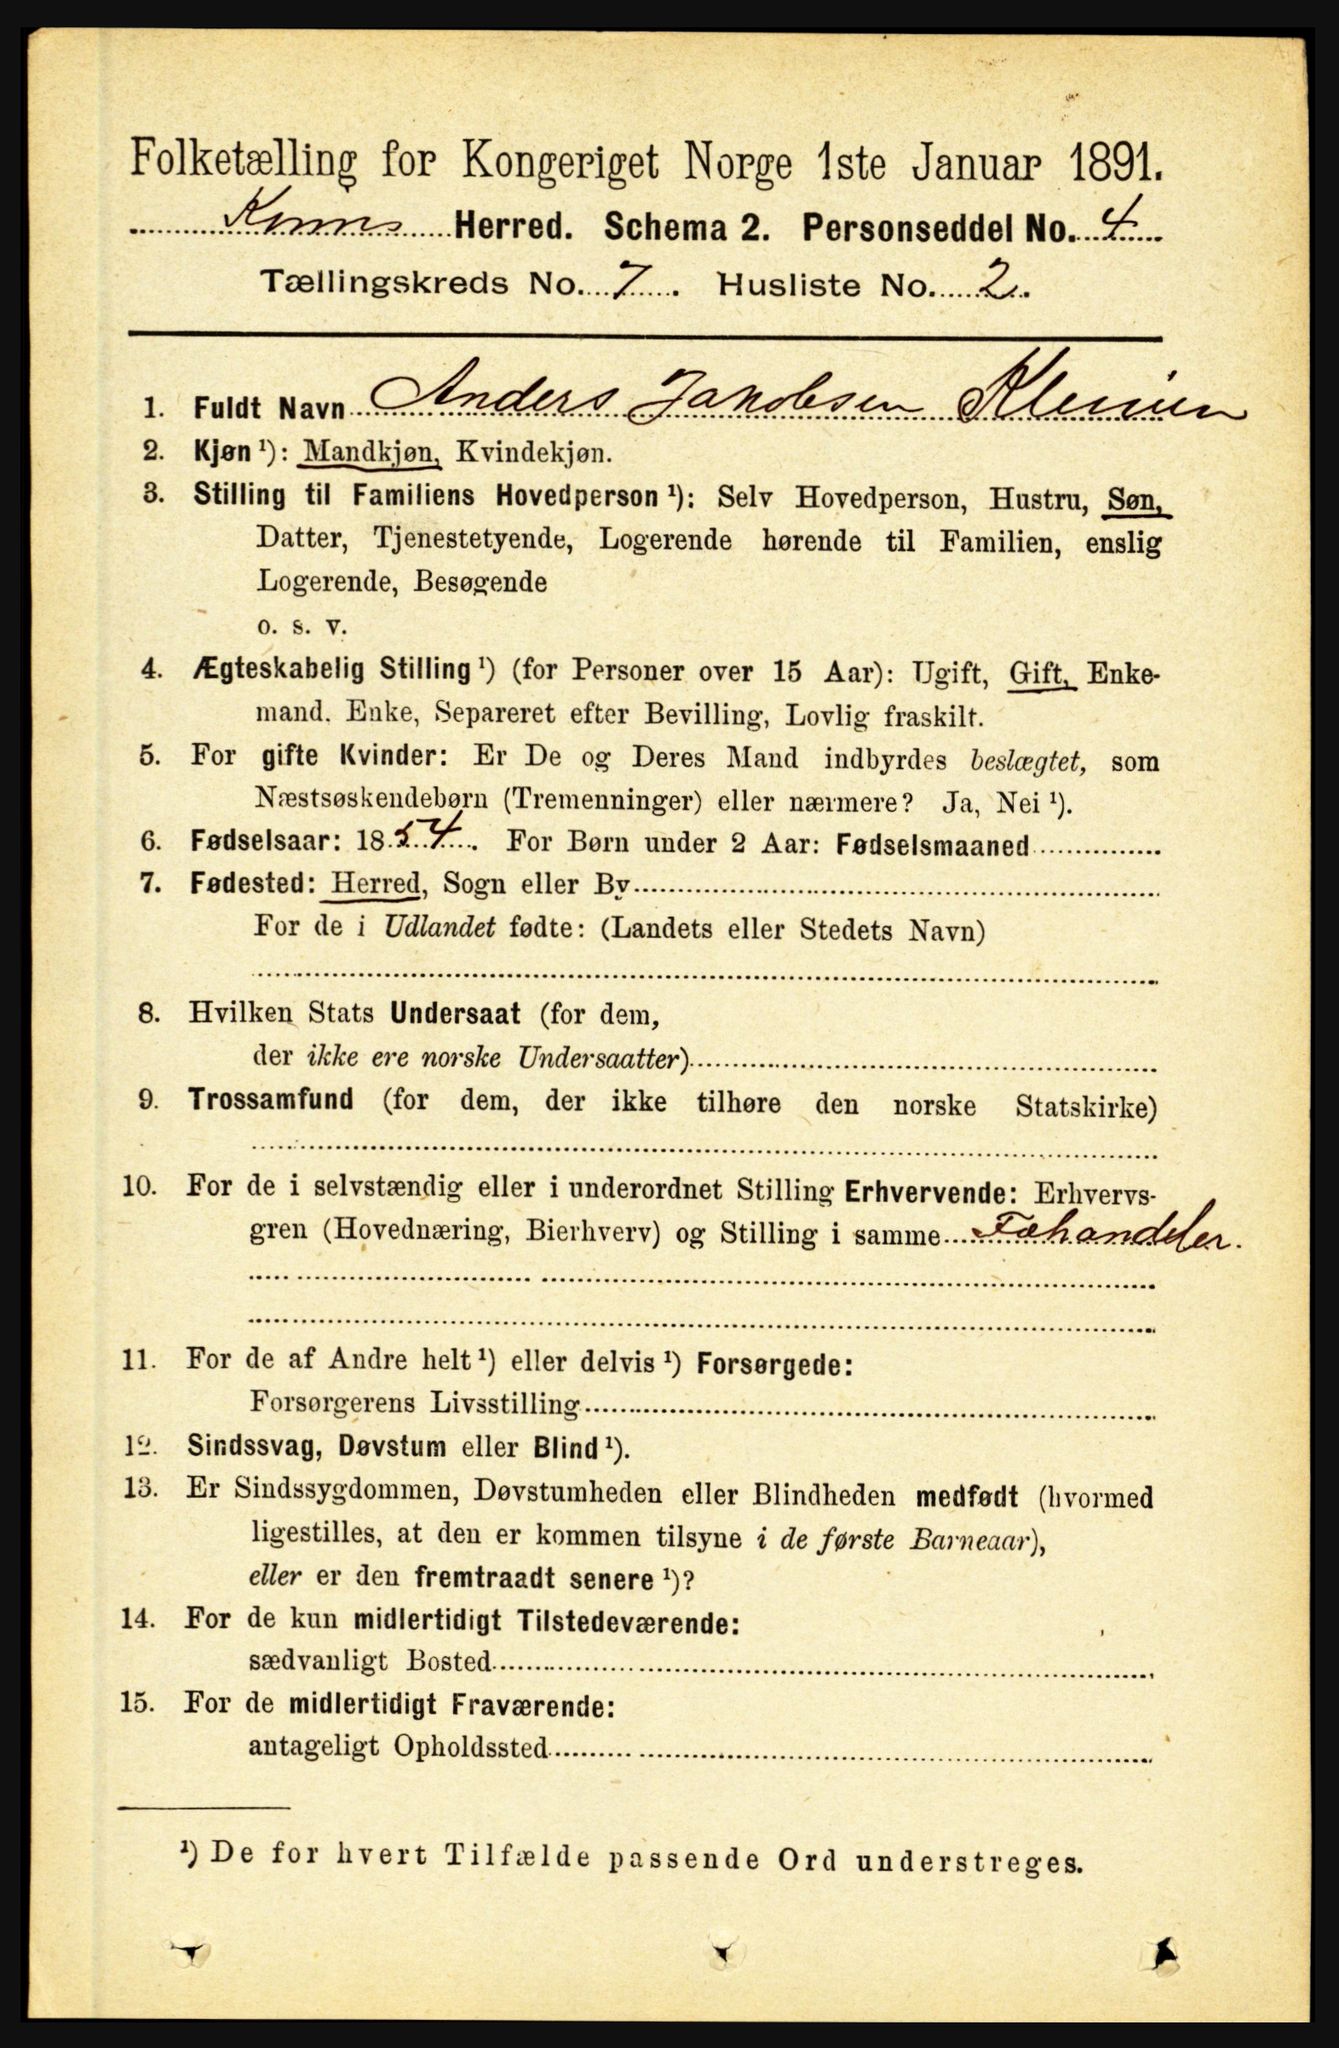 Folketælling for Kongeriget Norge 1ste Januar 1891.
Kinns Herred. Schema 2. Personseddel No. 4
Tællingskreds No. 7. Husliste No. 2.
1. Fuldt Navn Anders Jakobsen
2. Kjøn ¹): Mandkjøn, Kvindekjøn.
3. Stilling til Familiens Hovedperson ¹): Selv Hovedperson, Hustru, Søn,
Datter, Tjenestetyende, Logerende hørende til Familien, enslig
Logerende, Besøgende
o. s. v.
4. Ægteskabelig Stilling ¹) (for Personer over 15 Aar): Ugift, Gift, Enke-
mand. Enke, Separeret efter Bevilling, Lovlig fraskilt.
5. For gifte Kvinder: Er De og Deres Mand indbyrdes beslægtet, som
Næstsøskendebørn (Tremenninger) eller nærmere? Ja, Nei ¹).
6. Fødselsaar: 1854. For Børn under 2 Aar: Fødselsmaaned
7. Fødested: Herred, Sogn eller By
For de i Udlandet fødte: (Landets eller Stedets Navn)
8. Hvilken Stats Undersaat (for dem,
der ikke ere norske Undersaatter)
9. Trossamfund (for dem, der ikke tilhøre den norske Statskirke)
10. For de i selvstændig eller i underordnet Stilling Erhvervende: Erhvervs-
gren (Hovednæring, Bierhverv) og Stilling i samme Fæhandeler.
11. For de af Andre helt ¹) eller delvis ¹) Forsørgede:
Forsørgerens Livsstilling
12. Sindssvag, Døvstum eller Blind ¹).
13. Er Sindssygdommen, Døvstumheden eller Blindheden medfødt (hvormed
ligestilles, at den er kommen tilsyne i de første Barneaar),
eller er den fremtraadt senere ¹)?
14. For de kun midlertidigt Tilstedeværende:
sædvanligt Bosted
15. For de midlertidigt Fraværende:
antageligt Opholdssted
¹) De for hvert Tilfælde passende Ord understreges.